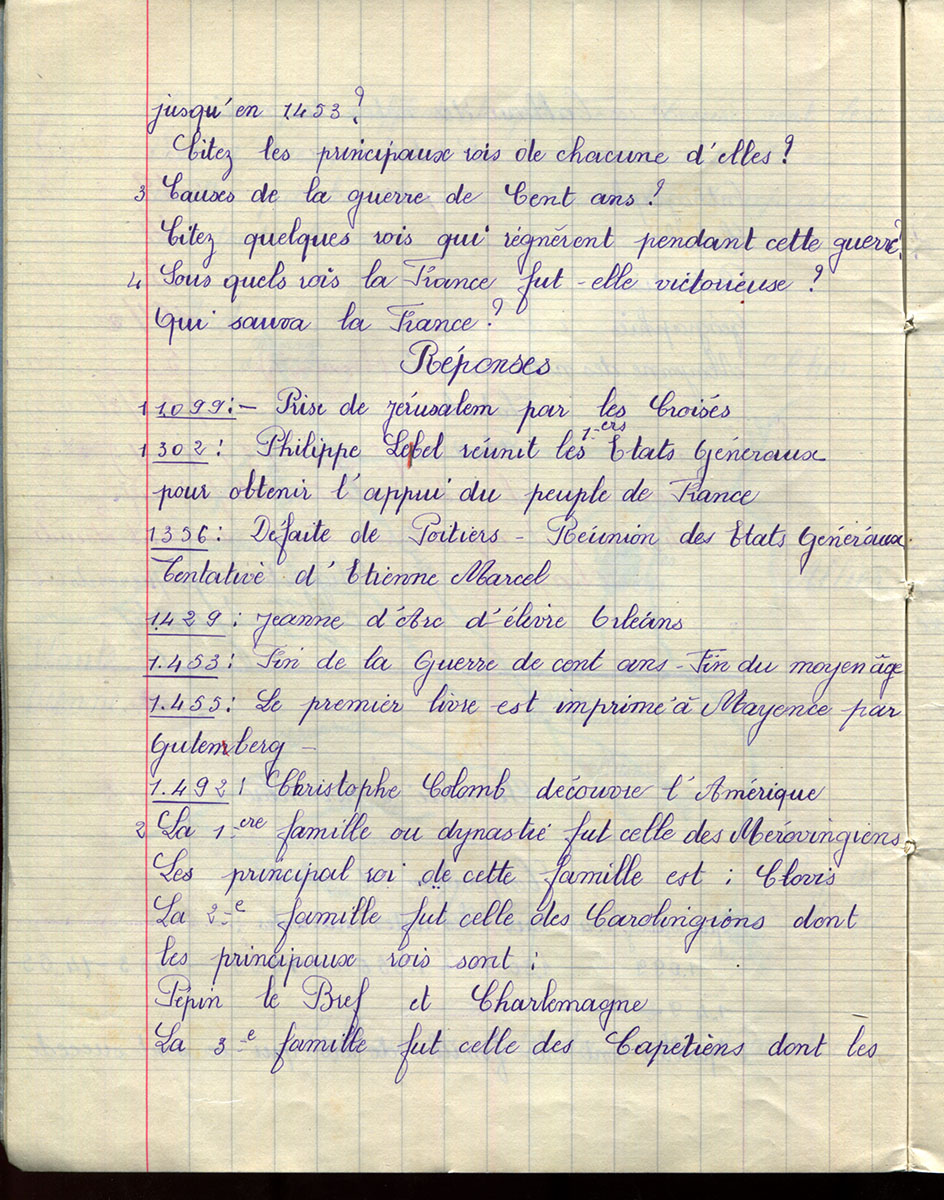 jusqu'en 1453?
Citez les principaux rois de chacune d'elles?
3 Causes de la guerre de Cent ans?
Citez quelques rois qui régnèrent pendant cette guerre?
4 Sous quels rois la France fut-elle victorieuse?
Qui sauva la France?
Réponses
1 1099:- Prise de Jérusalem par les Croisés
1302: Philippe Lebel réunit les 1-ers Etats Généraux
pour obtenir l'appui du peuple de France
1356: Défaite de Poitiers - Réunion des Etats Généraux
Tentative d'Etienne Marcel
1.429: Jeanne d'Arc d'élivre Orléans
1.453: Fin de la Guerre de cent ans - Fin du moyen âge
1.455: Le premier livre est imprimé à Mayence par
Gutemberg -
1.492: Christophe Colomb découvre l'Amérique
2 La 1-ere famille ou dynastie fut celle des Mérovingiens
Les principal roi de cette famille est: Clovis
La 2-e famille fut celle des Carolingions dont
les principaux rois sont:
Pépin le Bref et Charlemagne
La 3-e famille fut celle des Capetiens dont les